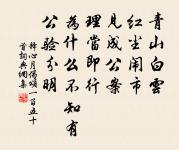 青山白雲
紅塵鬧市
見成公案
理當即行
為什么不知有
公驗分明
釋心月偈頌一百五十
首詞典網集